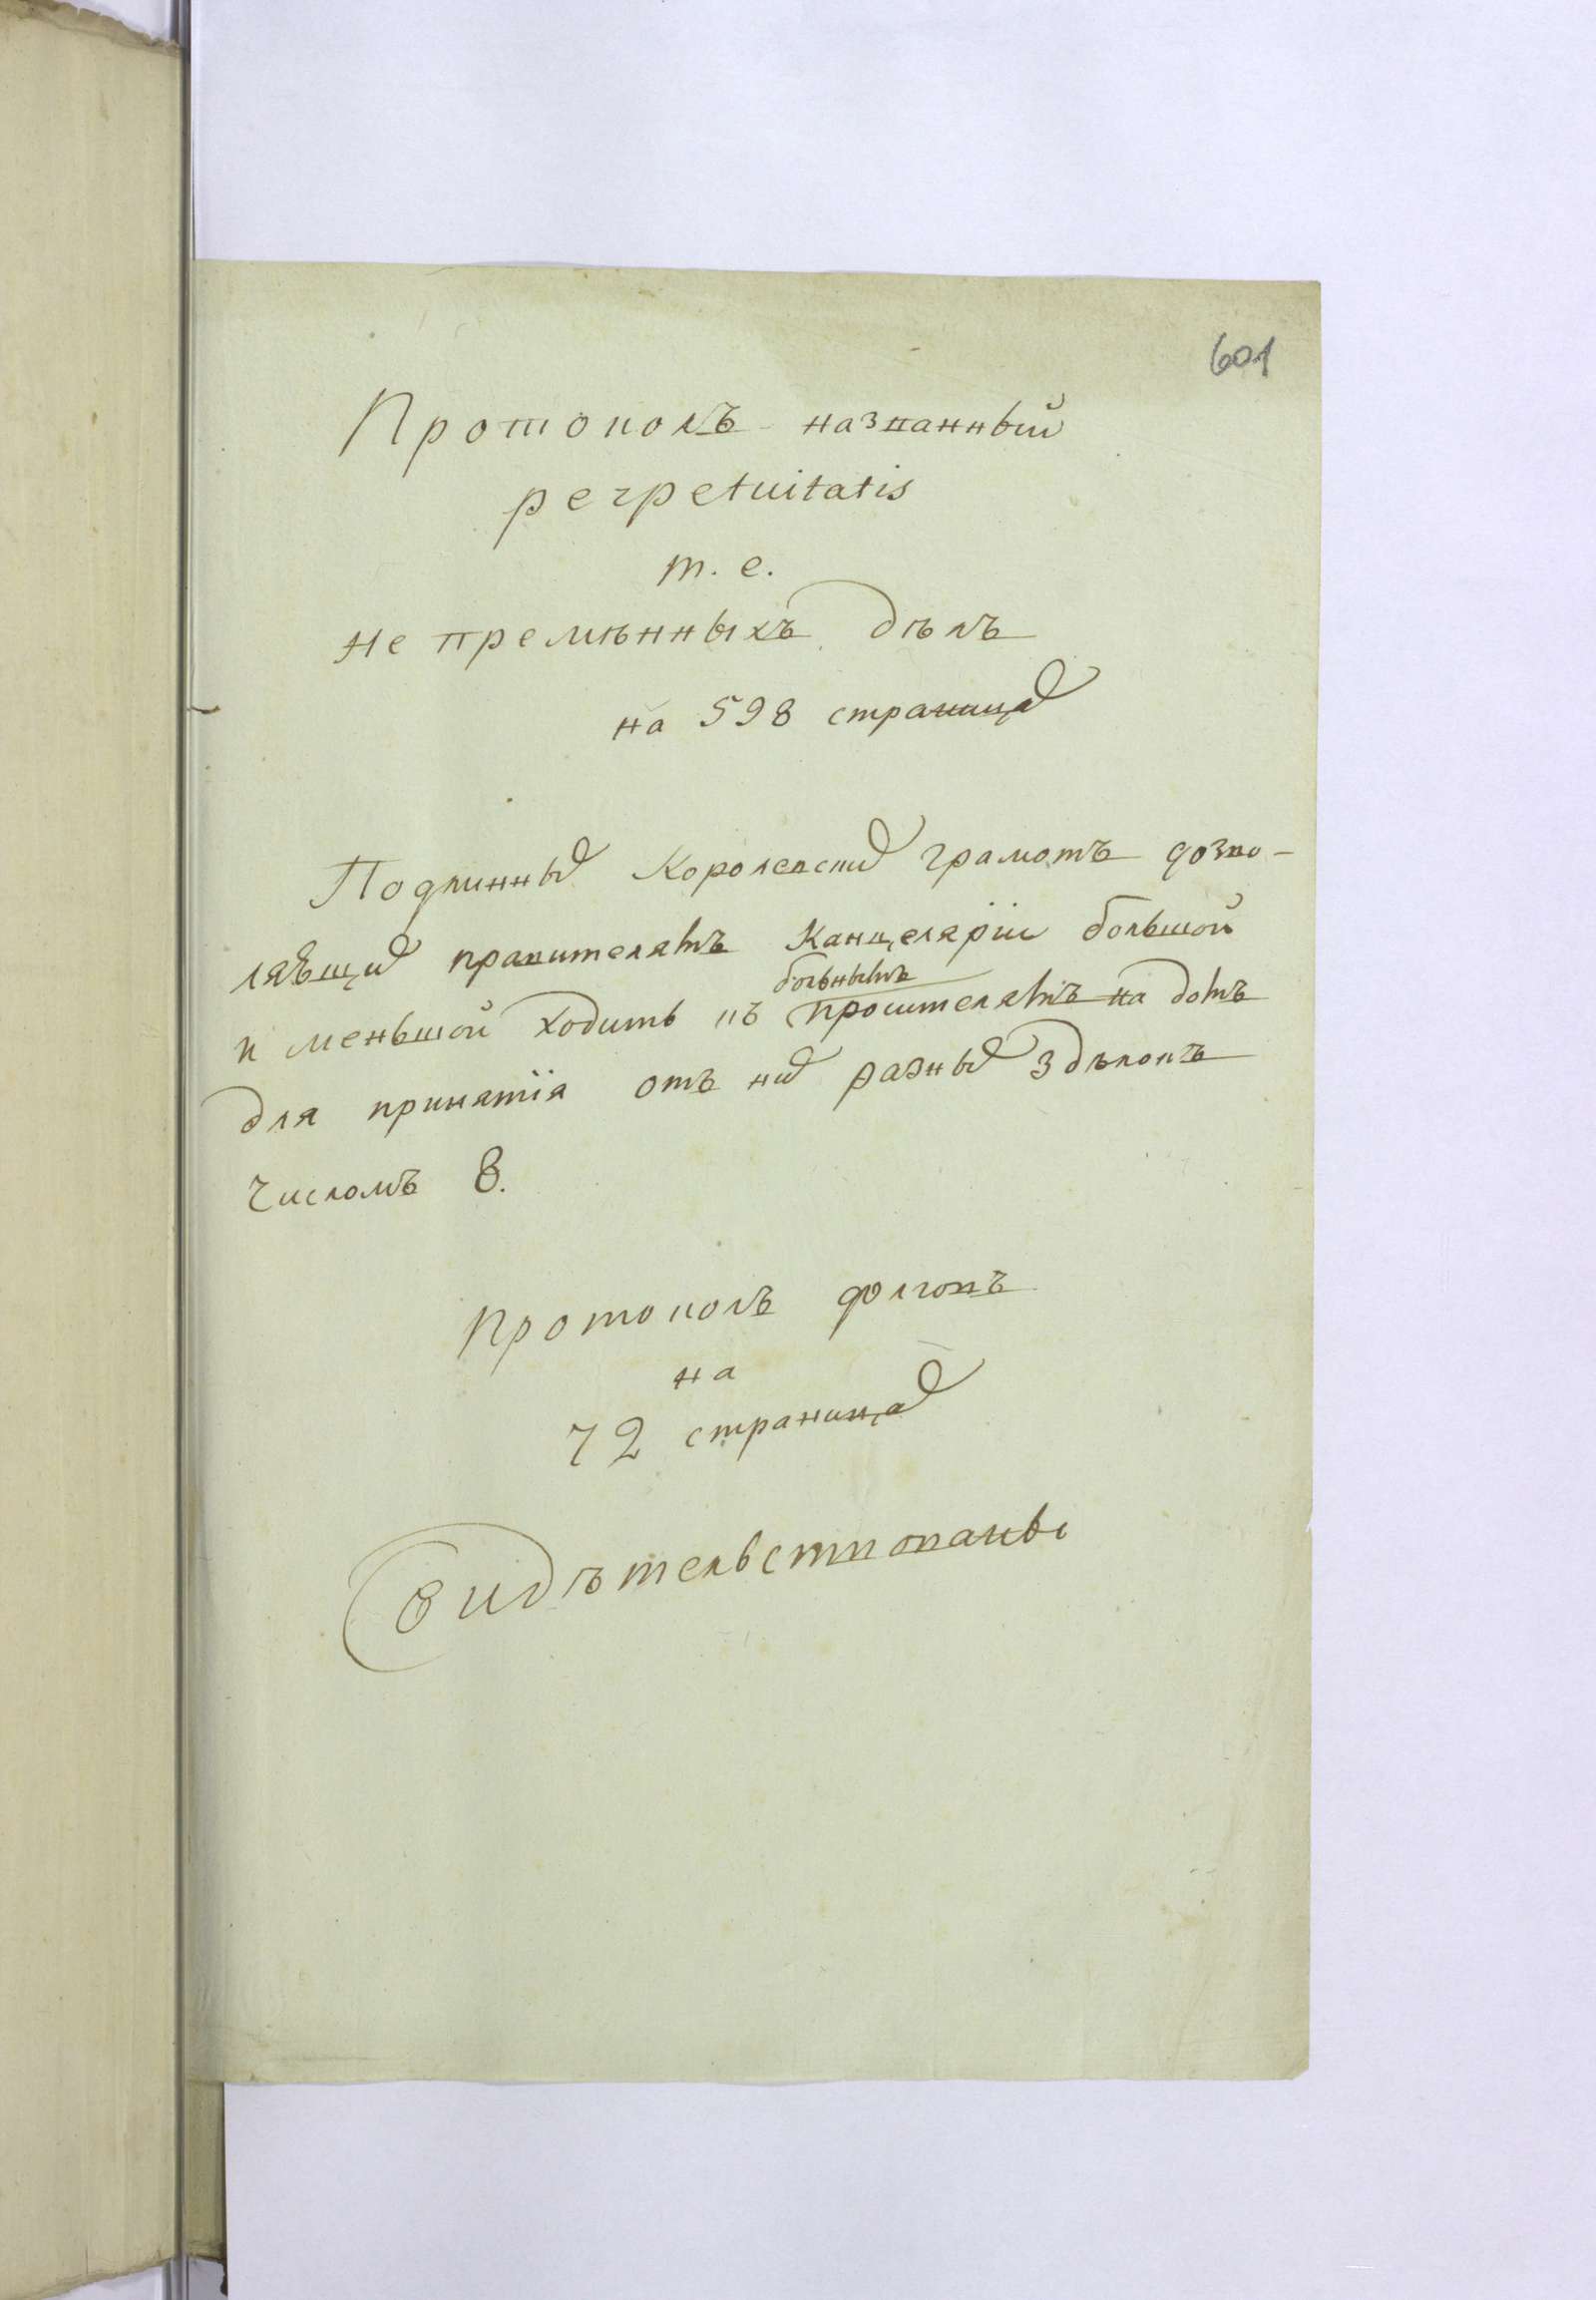 601
Протоколъ названный
perpetuitatis
т. е.
не премѣнныхъ дѣлъ
на 598 страницах
Подлинных Королевских грамотъ дозво-
ляющих правителямъ Канцелярiи большой
и меньшой ходить къ больнымъ просителямъ на домъ
для принятiя отъ них разных здѣлокъ
числомъ 8.
Протоколъ долговъ
на
72 страницах
Свидѣтельствованы